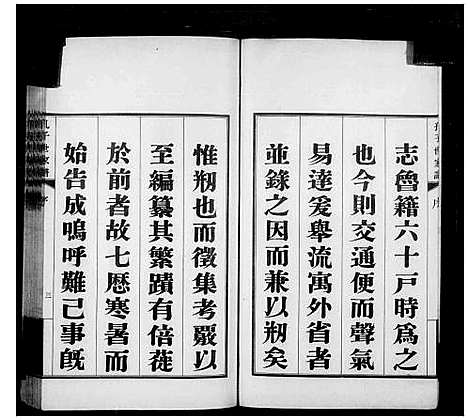 孔子世家譜 序
志魯籍六十戸時爲之
也今則交通便而聲氣
易達爰舉流寓外省者
並錄之因而兼以刱矣
惟刱也而徵集考覈以
至編纂其繁蹟有倍蓰
於前者故七歷寒暑而
始告成嗚呼難已事旣
孔子世家譜 序 三